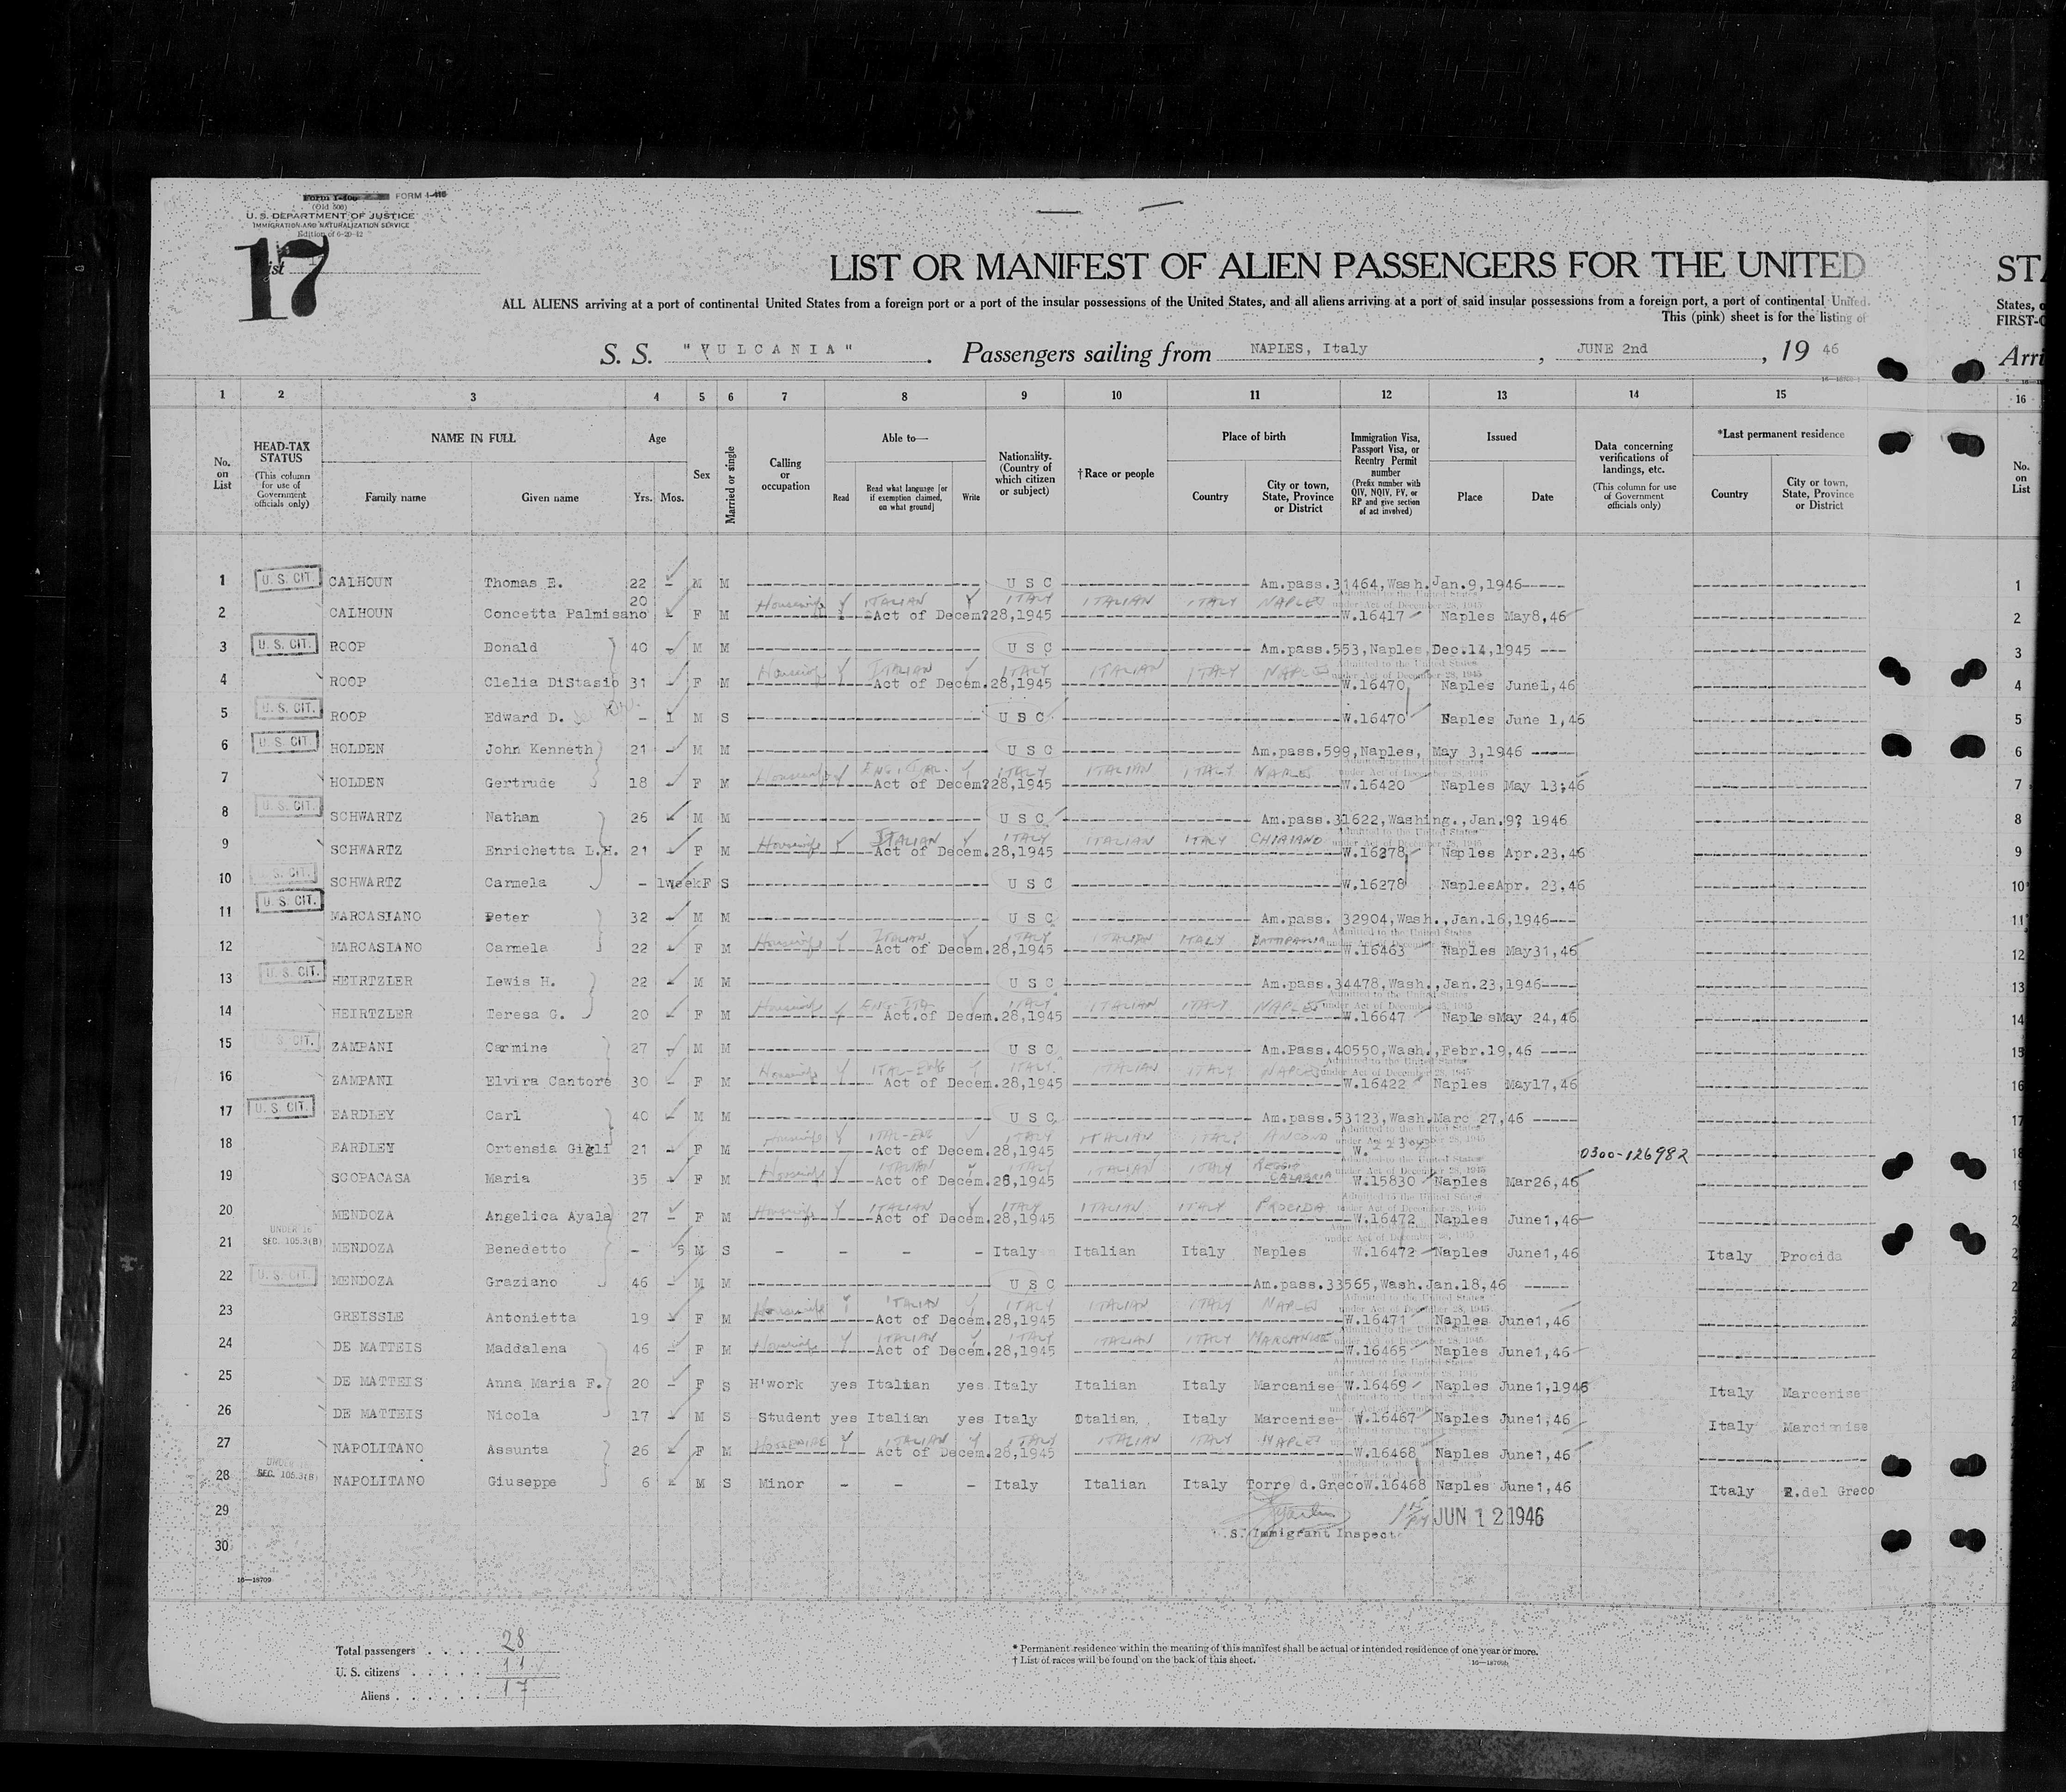 Form I-400 FORM I-416
(Old 500)
U. S. DEPARTMENT OF JUSTICE
IMMIGRATION AND NATURALIZATION SERVICE
Edition of 6-20-42
List 17
LIST OR MANIFEST OF ALIEN PASSENGERS FOR THE UNITED STA
ALL ALIENS arriving at a port of continental United States from a foreign port or a port of the insular possessions of the United States, and all aliens arriving at a port of said insular possessions from a foreign port, a port of continental United States, o
This (pink) sheet is for the listing of FIRST-C
S. S. "VULCANIA". Passengers sailing from NAPLES, Italy, JUNE 2nd, 19 46 Arri
1 2 3 4 5 6 7 8 9 10 11 12 13 14 15 16
No. on List
HEAD-TAX STATUS (This column for use of Government officials only)
NAME IN FULL Family name Given name
Age Yrs. Mos.
Sex
Married or single
Calling or occupation
Able to— Read Read what language [or if exemption claimed, on what ground] Write
Nationality. (Country of which citizen or subject)
†Race or people
Place of birth Country City or town, State, Province or District
Immigration Visa, Passport Visa, or Reentry Permit number (Prefix number with QIV, NQIV, PV, or RP and give section of act involved)
Issued Place Date
Data concerning verifications of landings, etc. (This column for use of Government officials only)
*Last permanent residence Country City or town, State, Province or District
No. on List
1 U. S. CIT. CALHOUN Thomas E. 22 - M M U S C Am.pass.31464,Wash.Jan.9,1946 1
2 CALHOUN Concetta Palmisano 20 F M Housewife Y ITALIAN Y ITALY ITALIAN ITALY NAPLES Act of Decem?28,1945 W.16417 Naples May8,46 2
3 U. S. CIT. ROOP Donald 40 - M M U S C Am.pass.553,Naples,Dec.14,1945 3
4 ROOP Clelia DiStasio 31 F M Housewife Y ITALIAN Y ITALY ITALIAN ITALY NAPLES Act of Decem.28,1945 W.16470 Naples June1,46 4
5 U. S. CIT. ROOP Edward D. - 1 M S U S C W.16470 Naples June 1,46 5
6 U. S. CIT. HOLDEN John Kenneth 21 - M M U S C Am.pass.599,Naples, May 3,1946 6
7 HOLDEN Gertrude 18 F M Housewife Y ENG.ITAL. Y ITALY ITALIAN ITALY NAPLES Act of Decem?28,1945 W.16420 Naples May 13,46 7
8 U. S. CIT. SCHWARTZ Nathan 26 M M U S C Am.pass.31622,Washing.,Jan.9? 1946 8
9 SCHWARTZ Enrichetta L.H. 21 F M Housewife Y ITALIAN Y ITALY ITALIAN ITALY CHIAIANO Act of Decem.28,1945 W.16278 Naples Apr.23,46 9
10 U. S. CIT. SCHWARTZ Carmela - 1week F S U S C W.16278 Naples Apr. 23,46 10
11 U. S. CIT. MARCASIANO Peter 32 M M U S C Am.pass. 32904,Wash.,Jan.16,1946 11
12 MARCASIANO Carmela 22 F M Housewife Y ITALIAN Y ITALY ITALIAN ITALY BATTIPAGLIA Act of Decem.28,1945 W.16463 Naples May31,46 12
13 U. S. CIT. HEIRTZLER Lewis H. 22 M M U S C Am.pass.34478,Wash.,Jan.23,1946 13
14 HEIRTZLER Teresa G. 20 F M Housewife Y ENG-ITA- Y ITALY ITALIAN ITALY NAPLES Act.of Decem.28,1945 W.16647 Naples May 24,46 14
15 U. S. CIT. ZAMPANI Carmine 27 M M U S C Am.Pass.40550,Wash.,Febr.19,46 15
16 ZAMPANI Elvira Cantore 30 F M Housewife Y ITAL-ENG Y ITALY ITALIAN ITALY NAPLES Act of Decem.28,1945 W.16422 Naples May17,46 16
17 U. S. CIT. EARDLEY Carl 40 M M U S C Am.pass.53123,Wash.Marc 27,46 17
18 EARDLEY Ortensia Gigli 21 F M Housewife Y ITAL-ENG Y ITALY ITALIAN ITALY ANCONA Act of Decem.28,1945 W. 0300-126982 18
19 SCOPACASA Maria 35 F M Housewife Y ITALIAN Y ITALY ITALIAN ITALY REGGIO CALABRIA Act of Decem.28,1945 W.15830 Naples Mar26,46
20 MENDOZA Angelica Ayala 27 - F M Housewife Y ITALIAN Y ITALY ITALIAN ITALY PROCIDA Act of Decem.28,1945 W.16472 Naples June1,46
21 UNDER 16 SEC. 105.3(B) MENDOZA Benedetto - 5 M S - - - - Italy Italian Italy Naples W.16472 Naples June1,46 Italy Procida
22 U. S. CIT. MENDOZA Graziano 46 - M M U S C Am.pass.33565,Wash.Jan.18,46
23 GREISSLE Antonietta 19 F M Housewife Y ITALIAN Y ITALY ITALIAN ITALY NAPLES Act of Decem.28,1945 W.16471 Naples June1,46
24 DE MATTEIS Maddalena 46 - F M Housewife Y ITALIAN Y ITALY ITALIAN ITALY MARCANISE Act of Decem.28,1945 W.16465 Naples June1,46
25 DE MATTEIS Anna Maria F. 20 - F S H'work yes Italian yes Italy Italian Italy Marcanise W.16469 Naples June1,1946 Italy Marcenise
26 DE MATTEIS Nicola 17 M S Student yes Italian yes Italy Italian, Italy Marcenise W.16467 Naples June1,46 Italy Marcinise
27 NAPOLITANO Assunta 26 F M HOUSEWIFE Y ITALIAN Y ITALY ITALIAN ITALY NAPLES Act of Decem.28,1945 W.16468 Naples June1,46
28 UNDER 16 SEC. 105.3(B) NAPOLITANO Giuseppe 6 M S Minor - - - Italy Italian Italy Torre d.Greco W.16468 Naples June1,46 Italy T.del Greco
29 JUN 12 1946
U.S. Immigrant Inspect
30
16—18709
Total passengers . . . . 28
U. S. citizens . . . . . 11
Aliens . . . . . . 17
* Permanent residence within the meaning of this manifest shall be actual or intended residence of one year or more.
† List of races will be found on the back of this sheet.